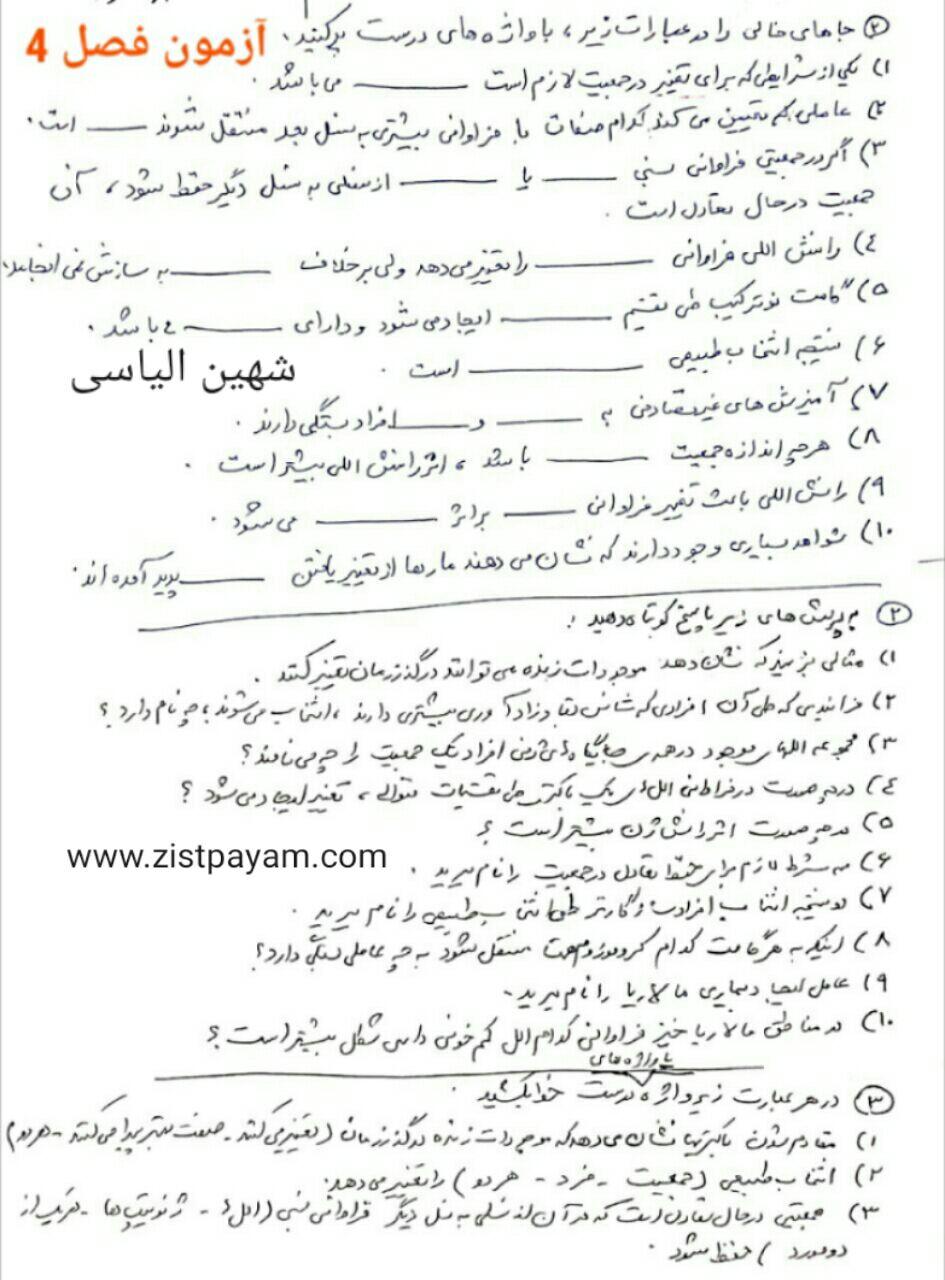 آزمون فصل 4
② جاهای خالی را در عبارات زیر، با واژه های درست پر کنید.
۱) یکی از شرایطی که برای تغییر در جمعیت لازم است ــــــ می باشد.
۲) عاملی که تعیین می کند کدام صفات با فراوانی بیشتری به نسل بعد منتقل شوند ــــــ است.
۳) اگر در جمعیتی فراوانی نسبی ــــــ یا ــــــ از نسلی به نسل دیگر حفظ شود، آن
جمعیت در حال تعادل است.
۴) رانش اللی فراوانی ــــــ را تغییر می دهد ولی بر خلاف ــــــ به سازش نمی انجامد.
۵) گامت نوترکیب طی تقسیم ــــــ ایجاد می شود و دارای ــــــ می باشد.
۶) نتیجه انتخاب طبیعی ــــــ است.
شهین الیاسی
۷) آمیزش های غیرتصادفی به ــــــ و ــــــ افراد بستگی دارند.
۸) هر چه اندازه جمعیت ــــــ باشد، اثر رانش اللی بیشتر است.
۹) رانش اللی باعث تغییر فراوانی ــــــ بر اثر ــــــ می شود.
۱۰) شواهد بسیاری وجود دارند که نشان می دهند مارها از تغییر یافتن ــــــ پدید آمده اند.
② به پرسش های زیر پاسخ کوتاه دهید:
۱) مثالی بزنید که نشان دهد موجودات زنده می توانند در گذر زمان تغییر کنند.
۲) فرایندی که طی آن افرادی که شانس بقا و زادآوری بیشتری دارند، انتخاب می شوند، چه نام دارد؟
۳) مجموعه اللهای موجود در همهی جایگاه های ژنی افراد یک جمعیت را چه می نامند؟
۴) در چه صورت در فراوانی الل های یک باکتری طی تقسیمات متوالی، تغییر ایجاد می شود؟
۵) در چه صورت اثر رانش ژن بیشتر است؟
www.zistpayam.com
۶) سه شرط لازم برای حفظ تعادل در جمعیت را نام ببرید.
۷) دو نتیجه انتخاب افراد سازگارتر طی انتخاب طبیعی را نام ببرید.
۸) اینکه به هر گامت کدام کروموزوم منتقل شود به چه عاملی بستگی دارد؟
۹) عامل ایجاد بیماری مالاریا را نام ببرید.
۱۰) در مناطق مالاریا خیز فراوانی کدام الل کم خونی داسی شکل بیشتر است؟
③ در هر عبارت زیر واژه یا واژه های درست خط بکشید.
۱) مقاوم شدن باکتریها نشان می دهد که موجودات زنده در گذر زمان (تغییر می کنند - صفت بهتر پیدا می کنند - هر دو)
۲) انتخاب طبیعی (جمعیت - فرد - هر دو) را تغییر می دهد.
۳) جمعیتی در حال تعادل است که در آن از نسلی به نسل دیگر فراوانی نسبی (الل ها - ژنوتیپ ها - هر یک از
دو مورد) حفظ شود.